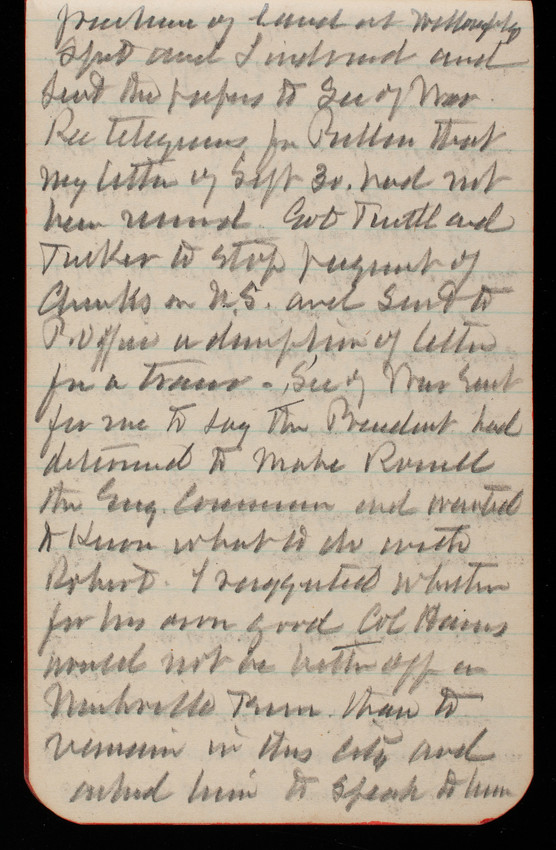 purchase of land at Willoughby
Spit and I indorsed and
Send the papers to Sec of War.
Rec telegrams fr that
my letter of Sept 30. had not
been received. Got Truitt and
Tucker to stop payment of
Checks on U.S. and Send to
P. Office a description of letter
for a tracer - Sec of War Sent
for me to say the President had
determined to make Rossell
the Eng. Commissioner and wanted
to Know what to do with
Robert. I suggested whether
for his own good Col Hains
would not be better off in
Nashville Tenn. than to
remain in this city and
asked him to speak to him